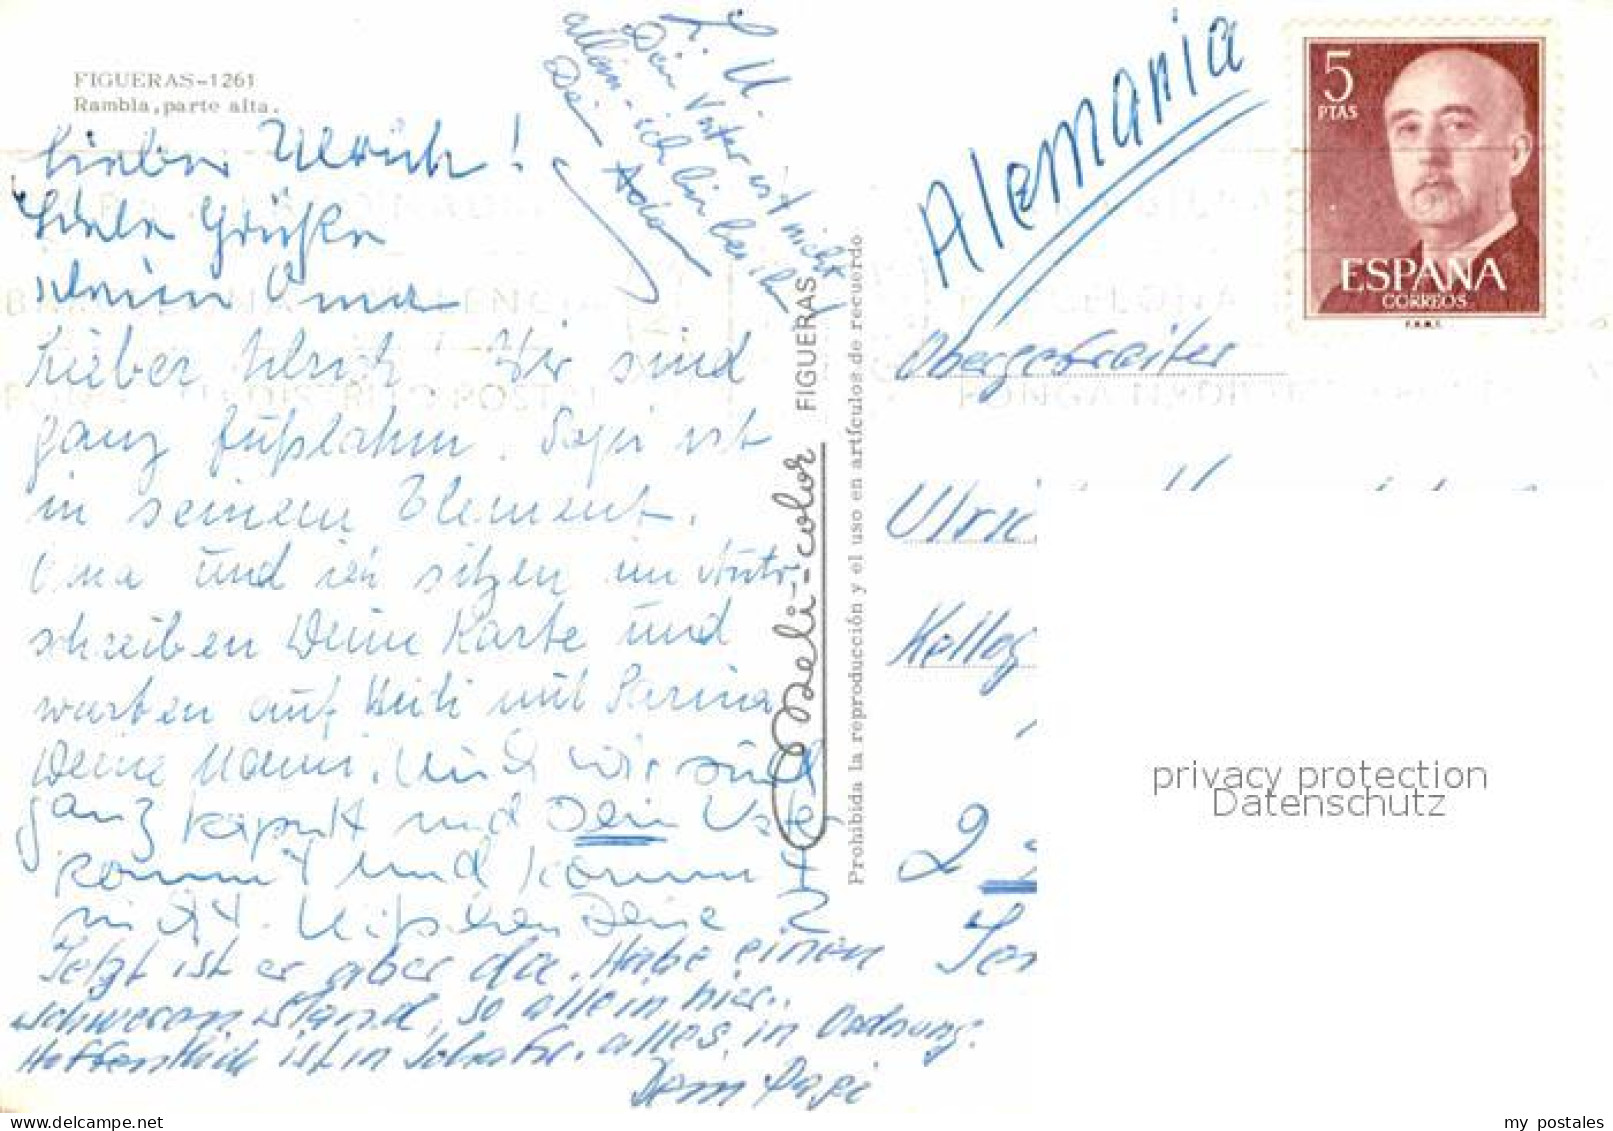 FIGUERAS-1261
Rambla, parte alta.
Lieber Ulrich!
Viele Grüße
Deine Oma
Lieber Ulrich! Wir sind
ganz fußlahm. Papi ist
in seinem Element.
Oma und ich sitzen im Auto
schreiben Deine Karte und
warten auf Heidi mit
Deine Mami. Auch wir sind
ganz kaputt und Dein Vater
kommt und kommt
nicht. Deine
Jetzt ist er aber da. Habe einen
schweren Stand, so allein hier.
Hoffentlich ist in alles in Ordnung.
Dein Papi
L. U.
Dein Vater ist nicht
allein - ich bin bei ihm
Dein
Meli-color FIGUERAS
Prohibida la reproducción y el uso en artículos de recuerdo
Alemania
5
PTAS
ESPAÑA
CORREOS
F.N.M.T.
Obergefreiter
Ulric
Kellog
2
privacy protection
Datenschutz
www.delcampe.net
my_postales